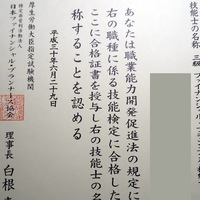 技能士の名称　三級
ファイナンシャル
あなたは職業能力開発促進法の規定に
右の職種に係る技能検定に合格した
ここに合格証書を授与し右の技能士の名
称することを認める
平成三十年六月二十九日
厚生労働大臣指定試験機関
特定非営利活動法人
日本ファイナンシャル・プランナーズ協会
理事長　白根